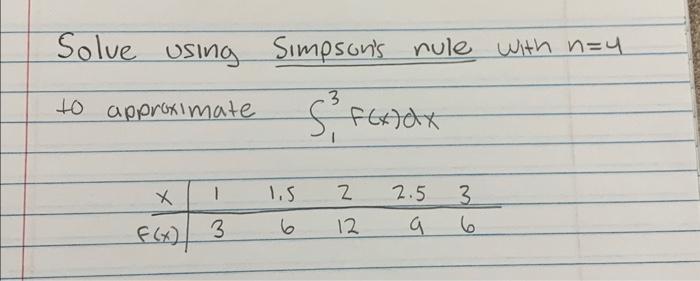 Solve using Simpson's rule with n=4
to approximate ∫₁³ f(x)dx
x | 1 1.5 2 2.5 3
f(x) | 3 6 12 9 6